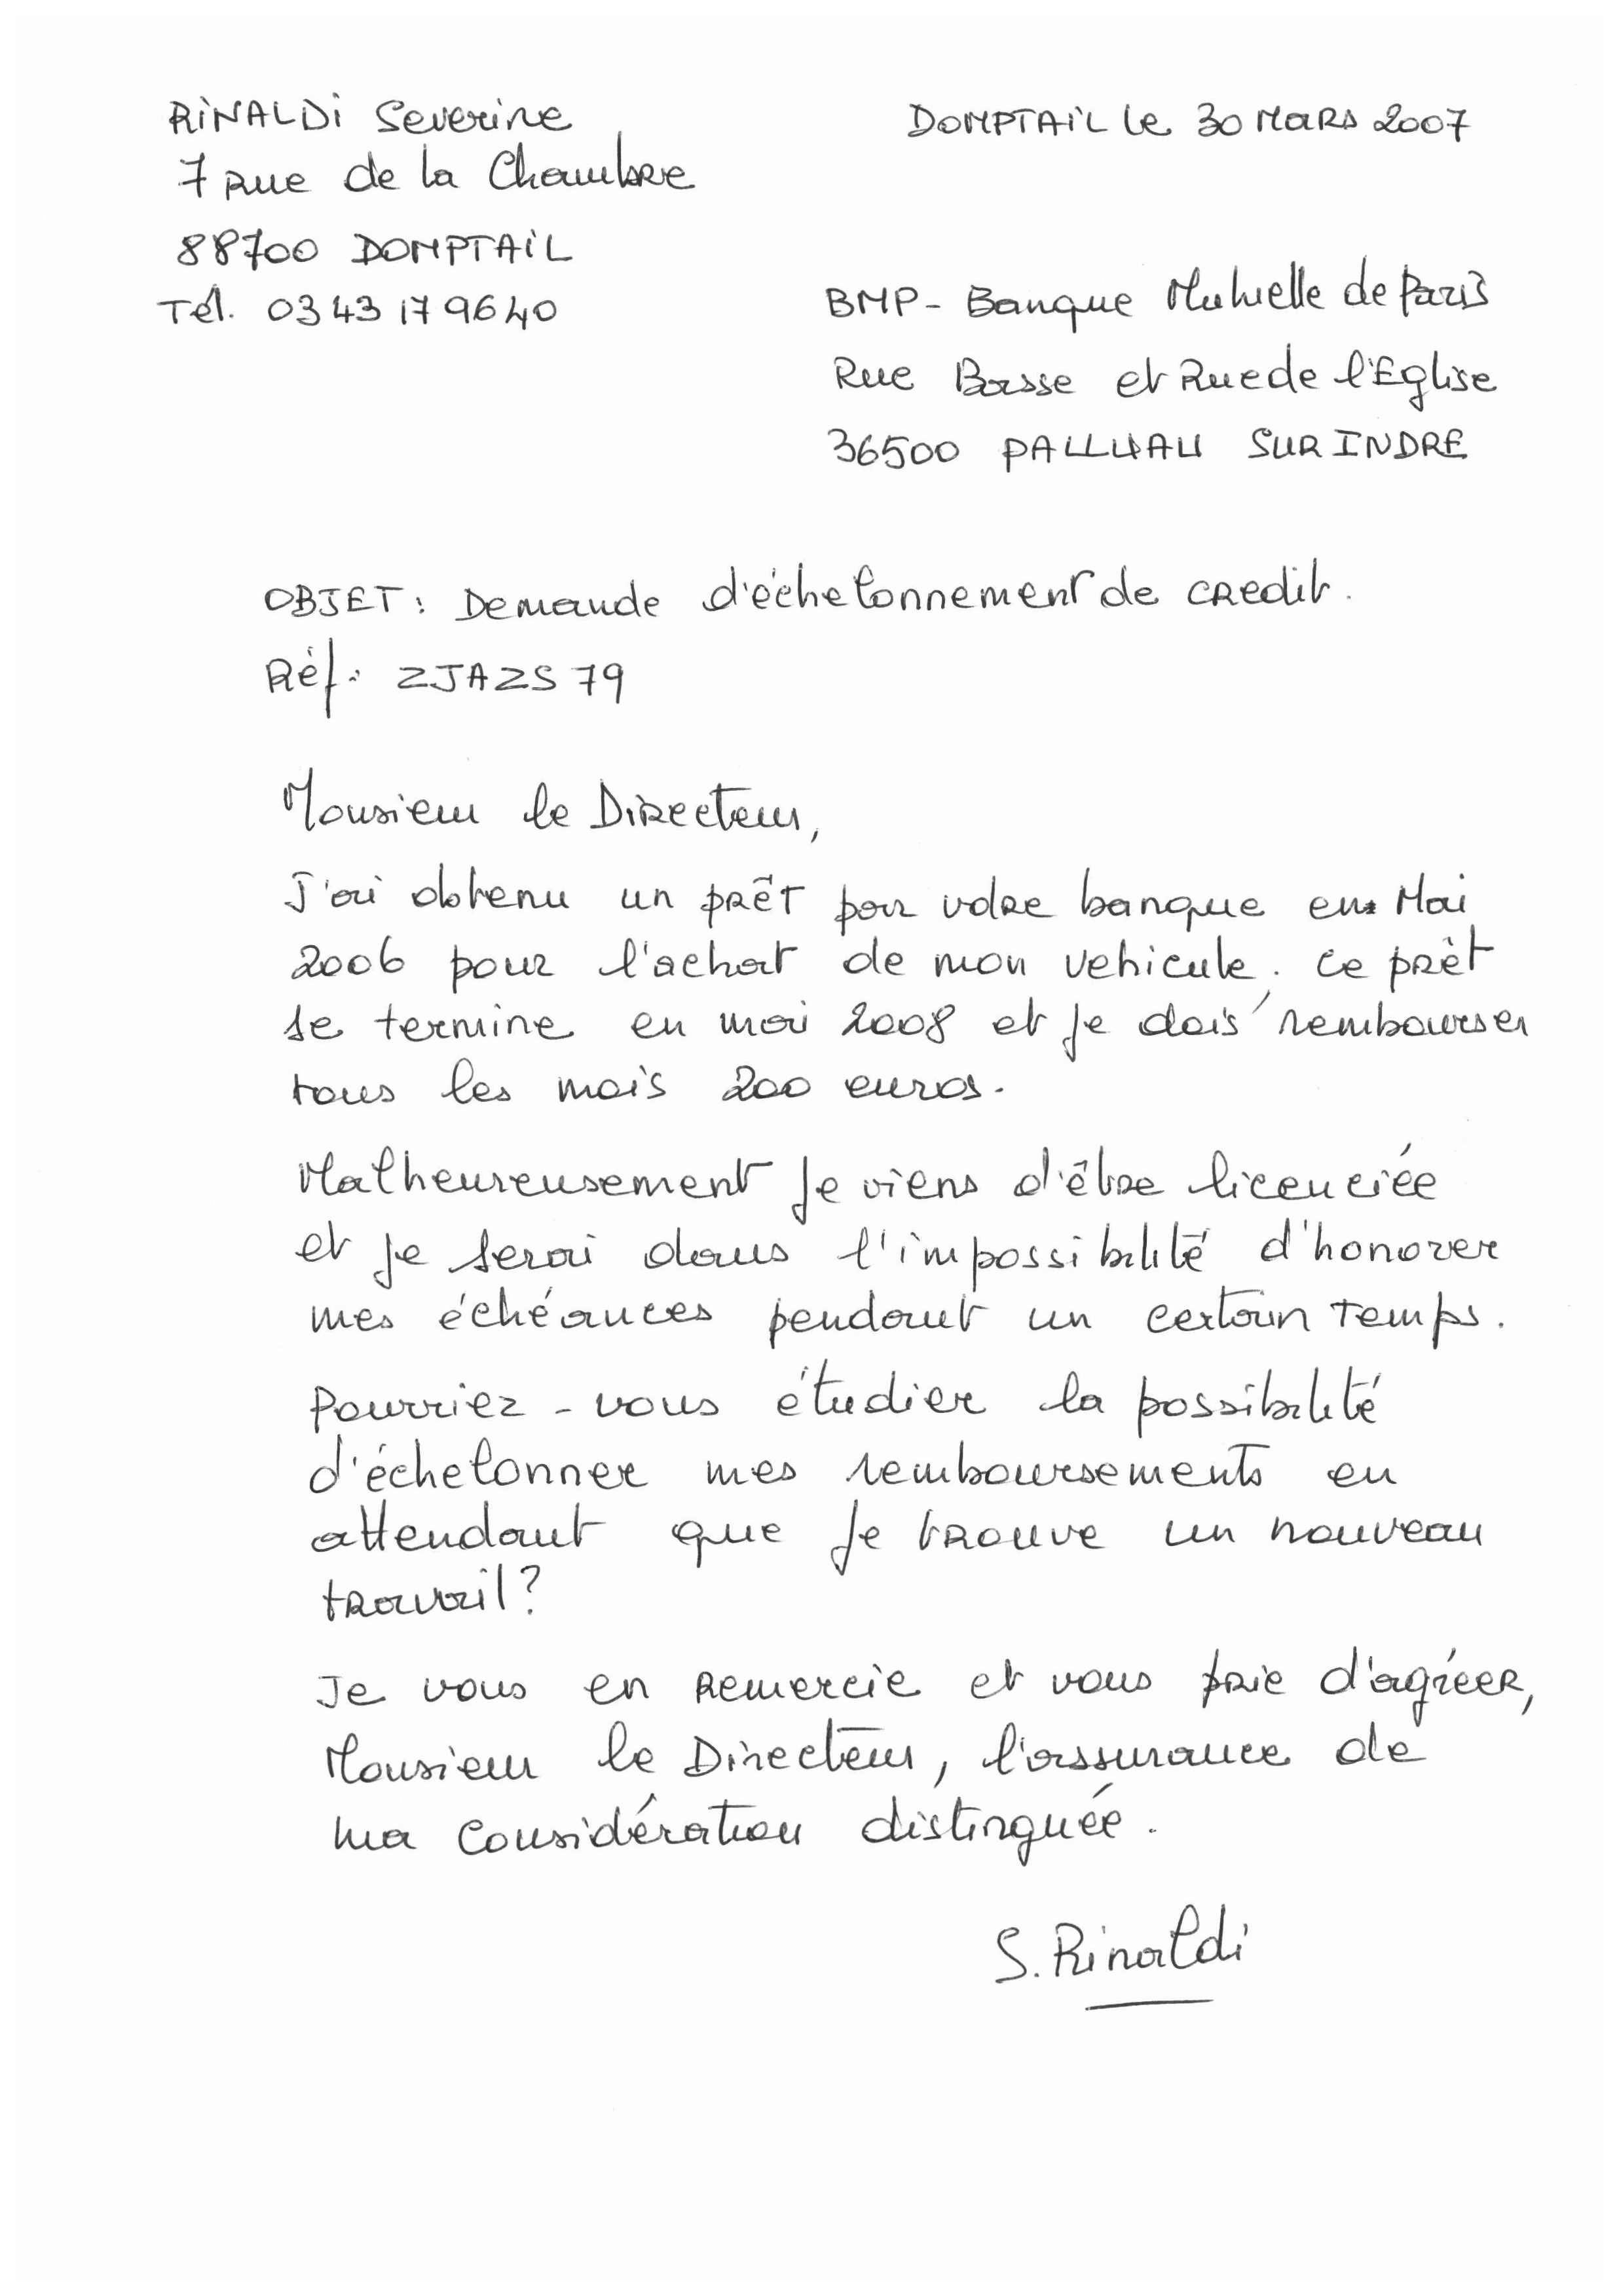 RINALDI Severine
7 rue de la Chambre
88700 DOMPTAIL
Tél. 03 43 17 96 40
DOMPTAIL le 30 MARS 2007
BMP - Banque Mutuelle de Paris
Rue Basse et Rue de l'Eglise
36500 PALLUAU SUR INDRE
OBJET : Demande d'échelonnement de credit.
Réf. ZJAZS 79
Monsieur le Directeur,
J'ai obtenu un prêt par votre banque en Mai
2006 pour l'achat de mon vehicule. Ce prêt
se termine en mai 2008 et je dois rembourser
tous les mois 200 euros.
Malheureusement je viens d'être licenciée
et je serai dans l'impossibilité d'honorer
mes échéances pendant un certain temps.
Pourriez-vous étudier la possibilité
d'échelonner mes remboursements en
attendant que je trouve un nouveau
travail ?
Je vous en remercie et vous prie d'agréer,
Monsieur le Directeur, l'assurance de
ma considération distinguée.
S. Rinaldi